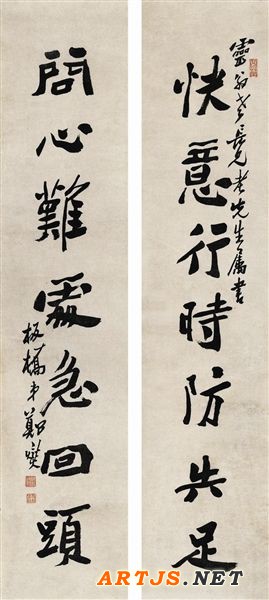 靈翁老長兄老先生屬書
快意行時防失足
問心難處急回頭
板橋弟鄭燮
ARTJS.NET